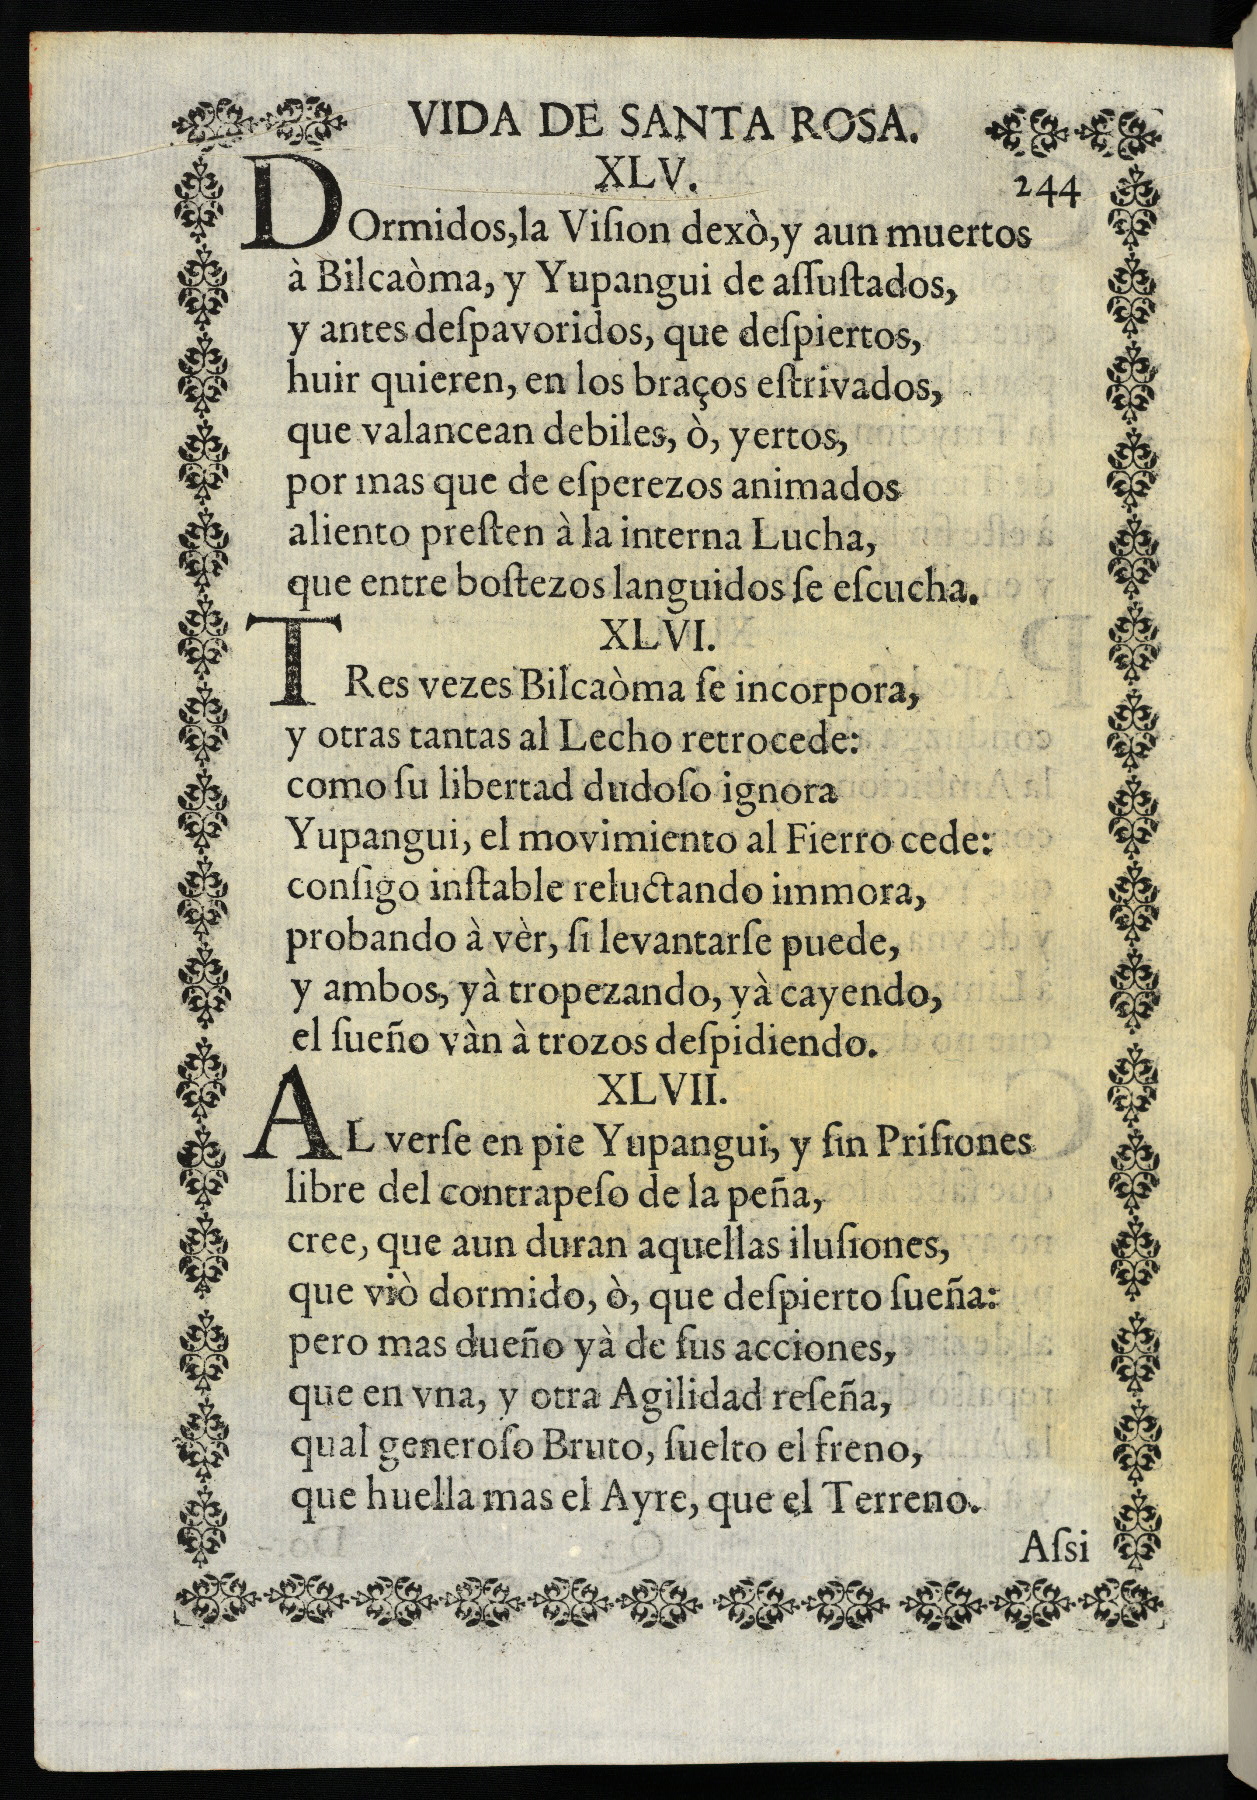 VIDA DE SANTA ROSA.
XLV.
244
DOrmidos,la Viſion dexò,y aun muertos
à Bilcaòma, y Yupangui de aſſuſtados,
y antes deſpavoridos, que deſpiertos,
huir quieren, en los braços eſtrivados,
que valancean debiles, ò, yertos,
por mas que de eſperezos animados
aliento preſten à la interna Lucha,
que entre boſtezos languidos ſe eſcucha.
XLVI.
TRes vezes Bilcaòma ſe incorpora,
y otras tantas al Lecho retrocede:
como ſu libertad dudoſo ignora
Yupangui, el movimiento al Fierro cede:
conſigo inſtable reluctando immora,
probando à vèr, ſi levantarſe puede,
y ambos, yà tropezando, yà cayendo,
el ſueño vàn à trozos deſpidiendo.
XLVII.
AL verſe en pie Yupangui, y ſin Priſiones
libre del contrapeſo de la peña,
cree, que aun duran aquellas iluſiones,
que viò dormido, ò, que deſpierto ſueña:
pero mas dueño yà de ſus acciones,
que en vna, y otra Agilidad reſeña,
qual generoſo Bruto, ſuelto el freno,
que huella mas el Ayre, que el Terreno.
Aſsi